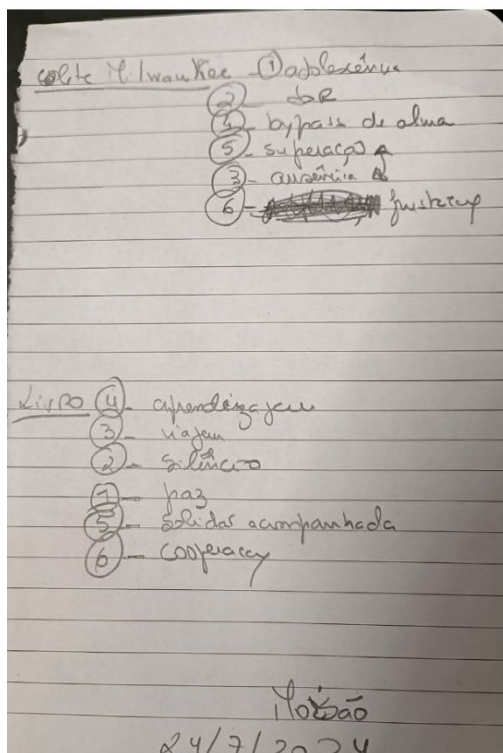 colete Milwaukee - ① adolescência
② dor
④ - bypass de alma
⑤ - superação
③ - ausência
⑥ -
Livro ④ - aprendizagem
③ - viagem
② - silêncio
① - paz
⑤ - solidão acompanhada
⑥ - cooperação
24/7/2024